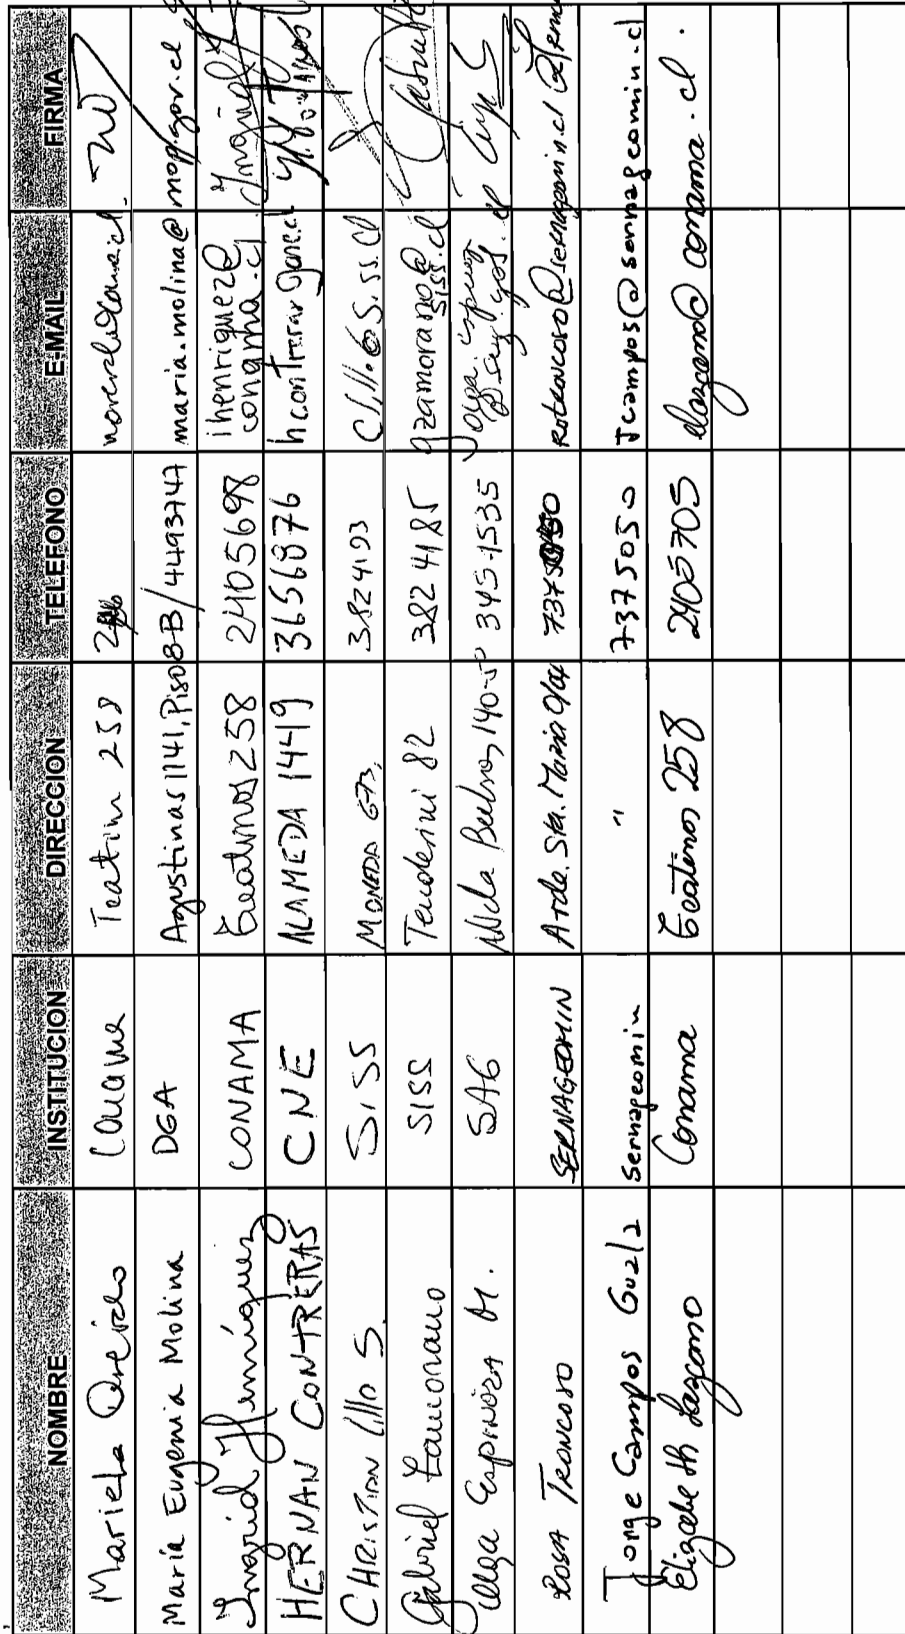 NOMBRE INSTITUCION DIRECCION TELEFONO E-MAIL FIRMA
Mariela Conama 258
María Eugenia Molina DGA Agustinas 1141, Piso 8-B / 4493747 maria.molina@mop.gov.cl
Ingrid Henríquez CONAMA Teatinos 258 2405698 ihenriquez@conama.cl
HERNAN CONTRERAS CNE ALAMEDA 1449 3656876
CHRISTIAN Lillo S. SISS MONEDA 673, 3824193
Gabriel Zamorano SISS Tenderini 82 3824185 gzamorano@siss.cl
Olga ESPINOZA M. SAG Bulnes 140 345-1535
ROSA TRONCOSO SERNAGEOMIN Avda. Sta. María 737
Jorge Campos Guzlz Sernageomin " 7375050 Jcampos@sernageomin.cl
Elizabeth Lazcano Conama Teatinos 258 2405705 elazcano@conama.cl.